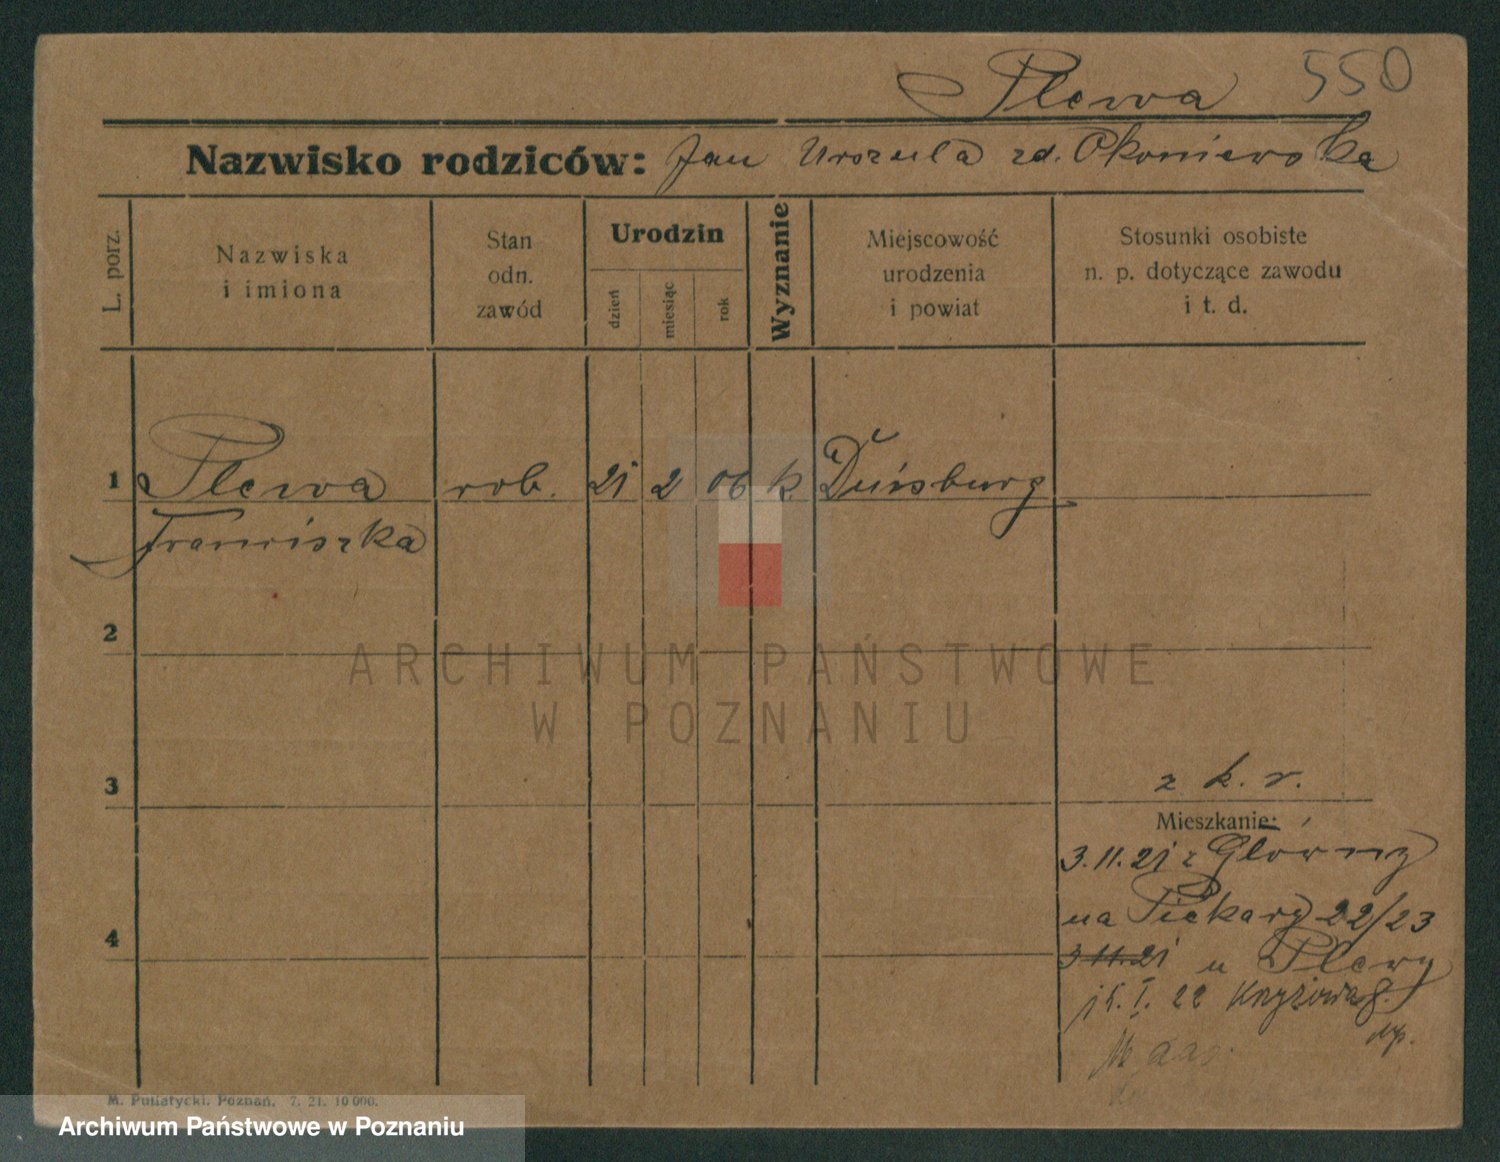 Plewa 550
Nazwisko rodziców: Jan Urszula zd. Okoniewska
L. porz.
Nazwiska
i imiona
Stan
odn.
zawód
Urodzin
dzień
miesiąc
rok
Wyznanie
Miejscowość
urodzenia
i powiat
Stosunki osobiste
n. p. dotyczące zawodu
i t. d.
1 Plewa rob. 21 2 06 k. Duisburg
Franciszka
2
ARCHIWUM PAŃSTWOWE
W POZNANIU
3
z k. r.
Mieszkanie:
3.11.21 z Główny
na Piekary 22/23
4
3 11.21 u Plewy
15.I.22 Krzyżowa 8.
M. Putiatycki. Poznań. 7. 21. 10 000.
Archiwum Państwowe w Poznaniu